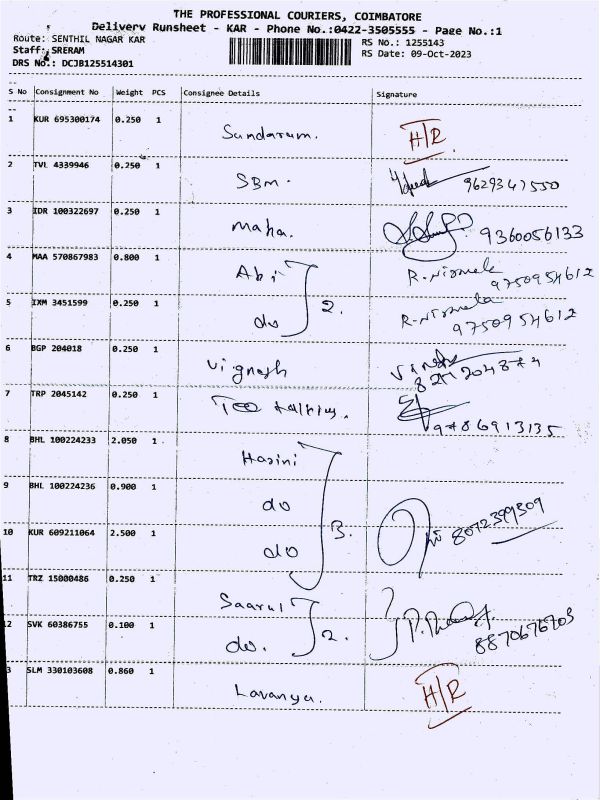 THE PROFESSIONAL COURIERS, COIMBATORE
Delivery Runsheet - KAR - Phone No.:0422-3505555 - Page No.:1
Route: SENTHIL NAGAR KAR
RS No.: 1255143
Staff: SRERAM
RS Date: 09-Oct-2023
DRS No.: DCJB125514301
S No Consignment No Weight PCS Consignee Details Signature
1 KUR 695300174 0.250 1 Sundaram. H/R
2 TVL 4339946 0.250 1 SBM. 9629347550
3 IDR 100322697 0.250 1 Maha. 9360056133
4 MAA 570867983 0.800 1 Abi R. Nirmala
9750954612
5 IXM 3451599 0.250 1 do 2. R. Nirmala
9750954612
6 BGP 204018 0.250 1 Vignesh
7 TRP 2045142 0.250 1
9486913135
8 BHL 100224233 2.050 1 Hasini
9 BHL 100224236 0.900 1 do
10 KUR 609211064 2.500 1 do 3. 8072399309
11 TRZ 15000486 0.250 1 Saarul
12 SVK 60386755 0.100 1 do. 2. 8870676703
3 SLM 330103608 0.860 1 Lavanya. H/R